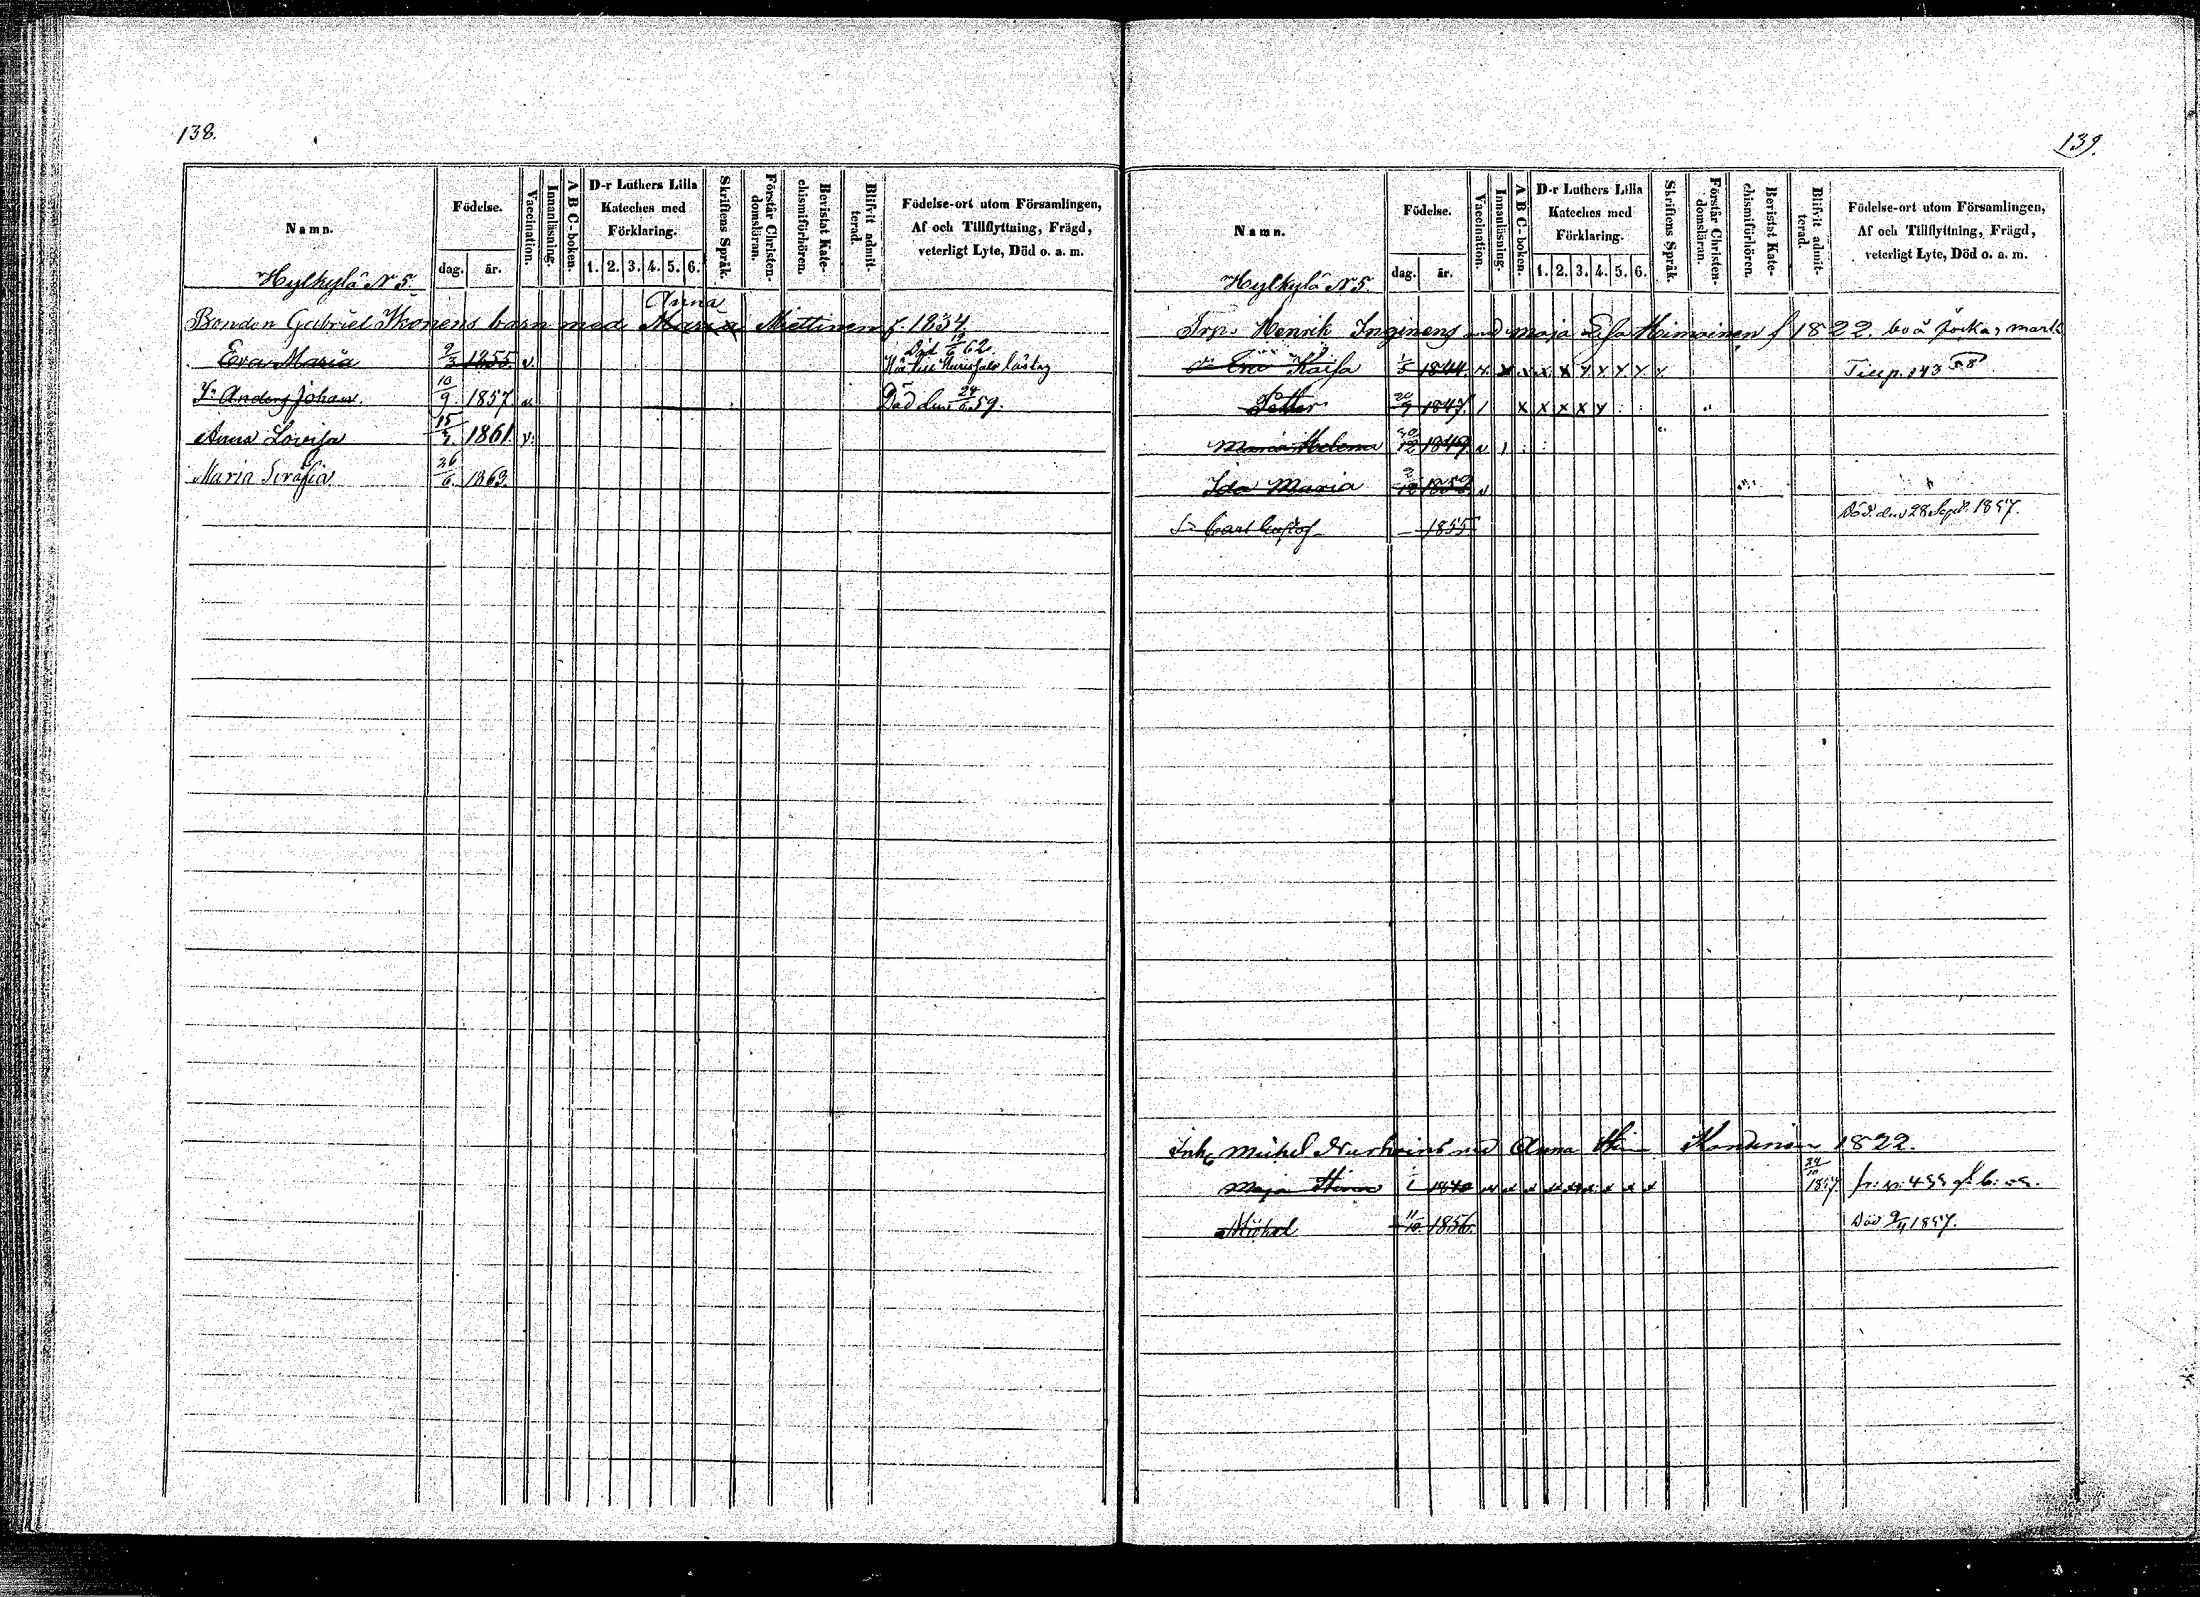 138.
Namn.
Födelse.
dag. år.
Vaccination.
Innanläsning.
A B C-boken.
D-r Luthers Lilla Kateches med Förklaring.
1. 2. 3. 4. 5. 6.
Skriftens Språk.
Förstår Christendomsläran.
Bevistat Katechismiförhören.
Blifvit admitterad.
Födelse-ort utom Församlingen,
Af och Tillflyttning, Frägd,
veterligt Lyte, Död o. a. m.
Hylkylä N 5.
Anna
Bonden Gabriel Ikonens barn med Maria Miettinen f. 1834.
Eva Maria 9/3 1855. v. Död 19/6 62.
Anders Johan. 10/9. 1857 v. Död den 24/ 59.
Anna Lovisa 15/ 1861 v.
Maria Serafia 26/6. 1863.
139.
Namn.
Födelse.
dag. år.
Vaccination.
Innanläsning.
A B C-boken.
D-r Luthers Lilla Kateches med Förklaring.
1. 2. 3. 4. 5. 6.
Skriftens Språk.
Förstår Christendomsläran.
Bevistat Katechismiförhören.
Blifvit admitterad.
Födelse-ort utom Församlingen,
Af och Tillflyttning, Frägd,
veterligt Lyte, Död o. a. m.
Hylkylä N 5.
Trp. Henrik Inginens med Maja Lisa Heimoinen f 1822. bo å mark
Kaisa 1/5 1844. x x x x y y y y y Till p. 143
Petter 20/9 1847. / x x x x y
Maria Helena 30/12 1849 v
Ida Maria 1852 v
Carl Gustof 1855 Död den 28 Sept. 1857.
Inh Michel Nurhoins med Anna Stin 1822.
Maja Stina 1840 24/10 1857.
Michel 11/10. 1856. Död 9/4 1857.